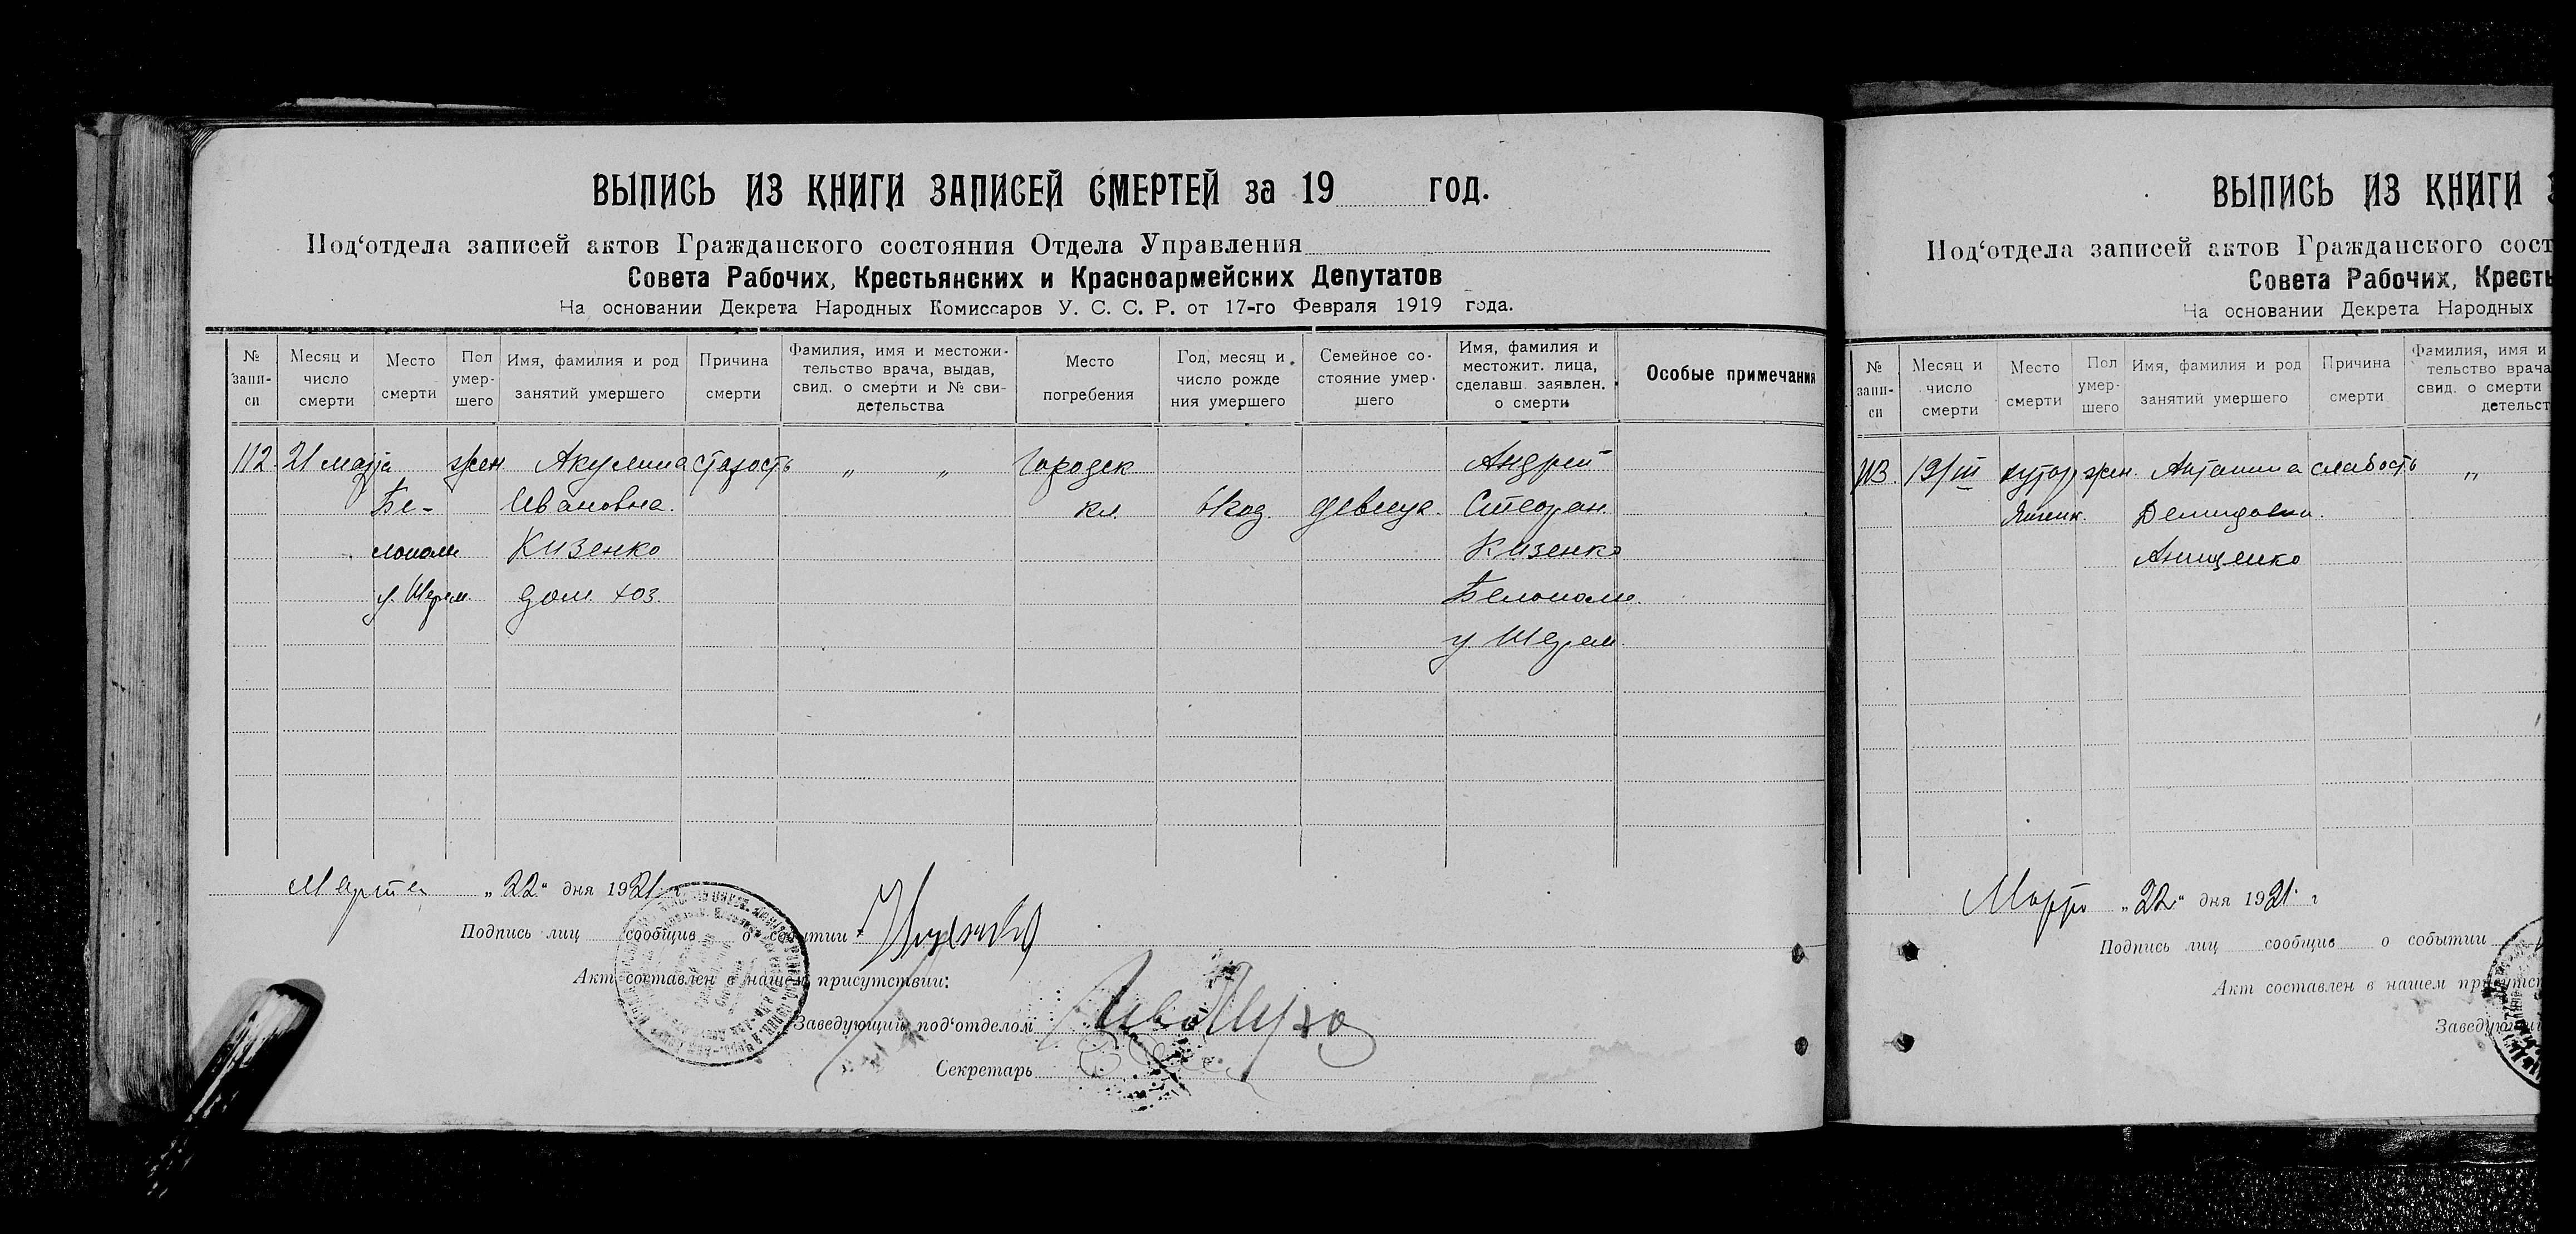 ВЫПИСЬ ИЗ КНИГИ ЗАПИСЕЙ СМЕРТЕЙ за 19 год.
Под‘отдела записей актов Гражданского состояния Отдела Управления
Совета Рабочих, Крестьянских и Красноармейских Депутатов
На основании Декрета Народных Комиссаров У. С. С. Р. от 17-го Февраля 1919 года.
№ запи-си
Месяц и число смерти
Место смерти
Пол умер-шего
Имя, фамилия и род занятий умершего
Причина смерти
Фамилия, имя и местожи-тельство врача, выдав, свид. о смерти и № сви-детельства
Место погребения
Год, месяц и число рожде ния умершего
Семейное со-стояние умер-шего
Имя, фамилия и местожит. лица, сделавш. заявлен. о смерти
Особые примечания
112 21 марта жен Акулина старость " " Городск Андрей
Бе- Ивановна. кл. девица. Стефан.
лополье Кизенко Кизенко
у. Шерем. дом. хоз. Белополье.
у Шерем.
Марта „22“ дня 1921 г.
Подпись лиц сообщив о событии
Акт составлен в нашем присутствии:
Заведующий под‘отделом
Секретарь
ВЫПИСЬ ИЗ КНИГИ
Под‘отдела записей актов Гражданского сост
Совета Рабочих, Кресть
На основании Декрета Народных
№ запи-си
Месяц и число смерти
Место смерти
Пол умер-шего
Имя, фамилия и род занятий умершего
Причина смерти
Фамилия, имя и тельство врача свид. о смерти детельст
113. 19/III хутор жен. Антонина слабость "
Демидовна.
Анищенко
Марта „22“ дня 1921 г
Подпись лиц сообщив о событии
Акт составлен в нашем присутст
Заведующи